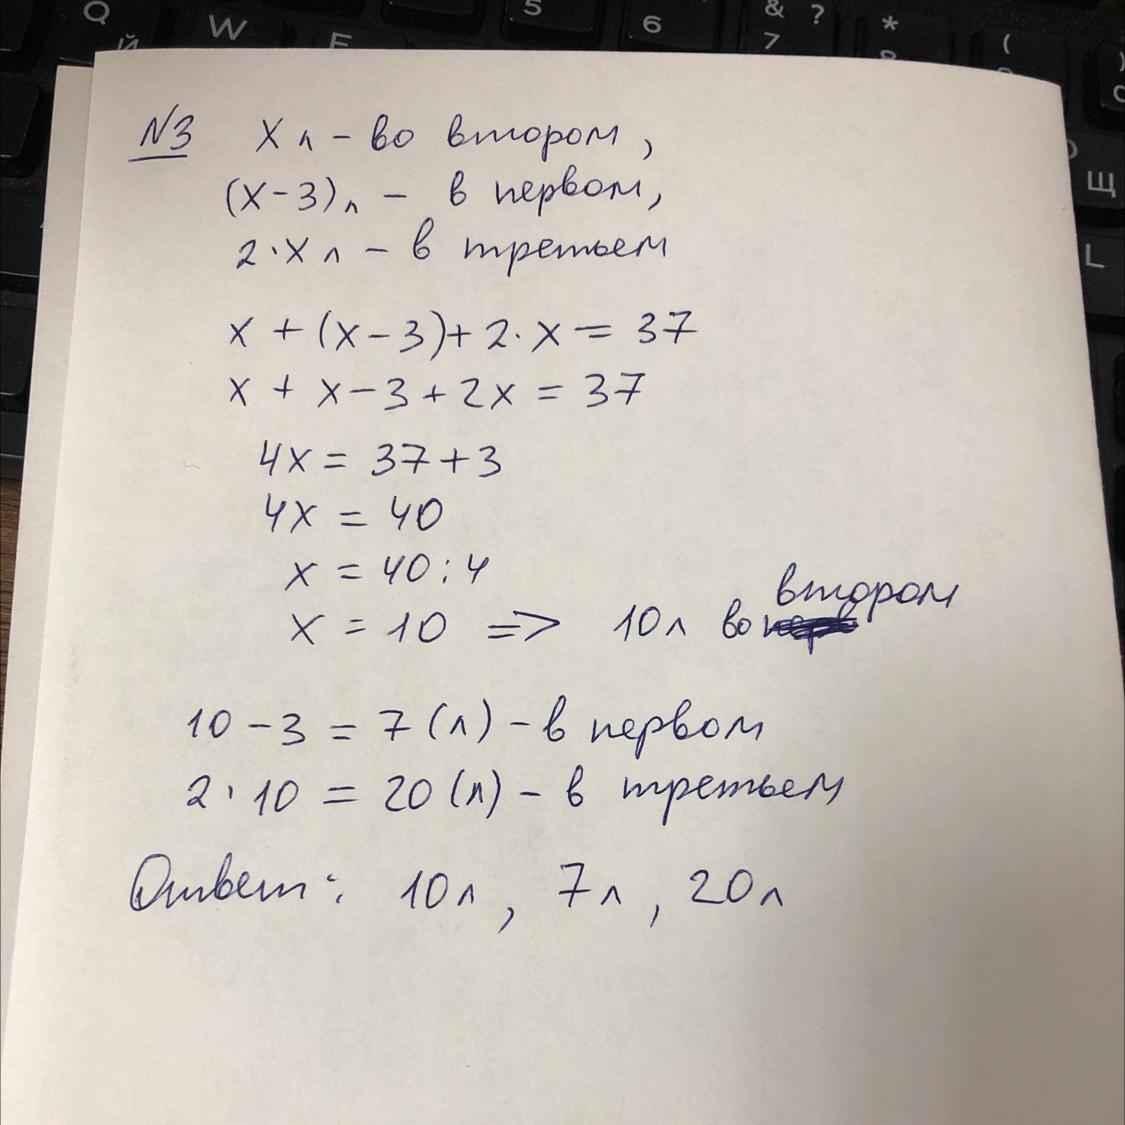 Q W E 5 6 & 7 ? * (
Й Щ L
N3 x л - во втором,
(x-3) л - в первом,
2·x л - в третьем
x + (x-3) + 2·x = 37
x + x - 3 + 2x = 37
4x = 37 + 3
4x = 40
x = 40 : 4
x = 10 => 10 л во втором
10 - 3 = 7 (л) - в первом
2·10 = 20 (л) - в третьем
Ответ: 10 л, 7 л, 20 л